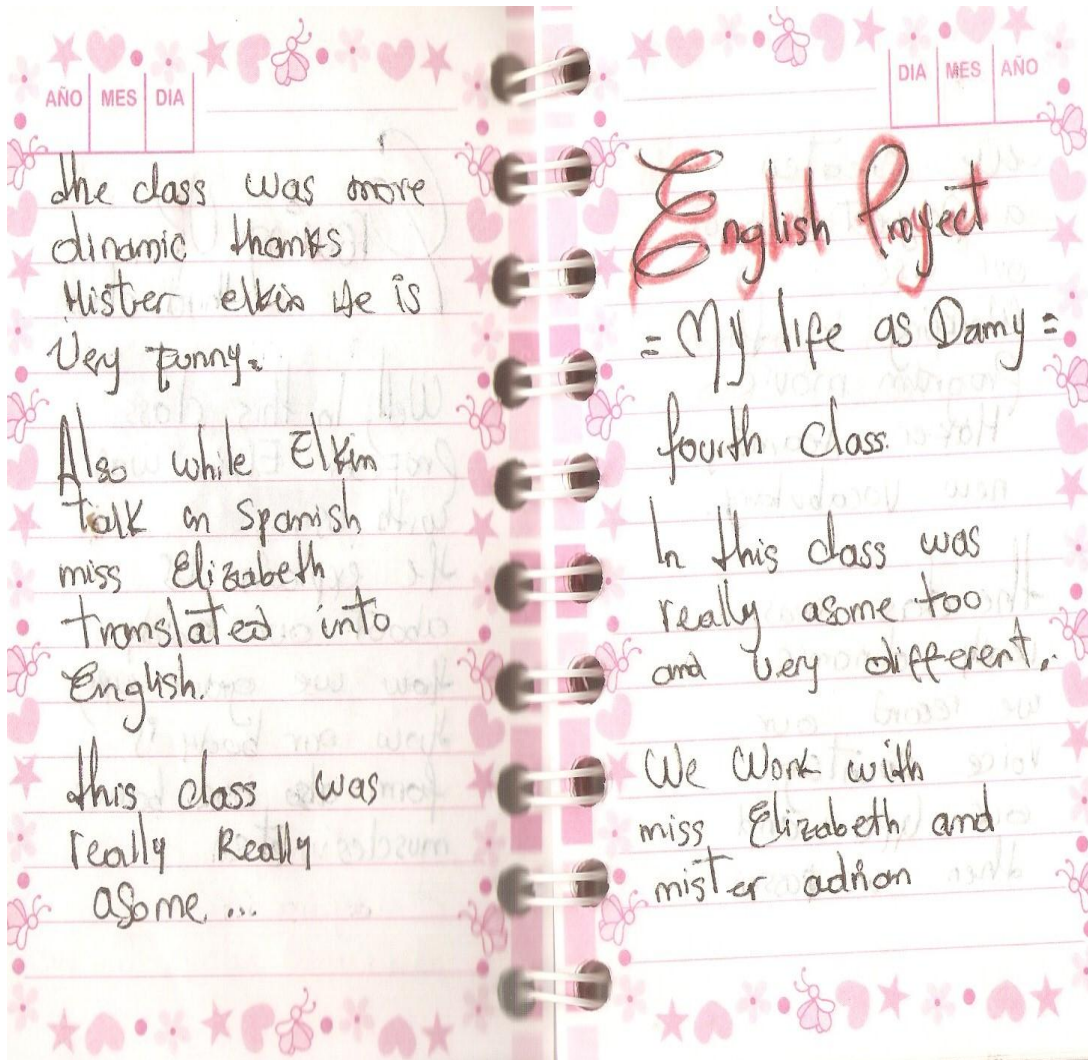 AÑO MES DIA
the class was more
dinamic thanks
Mister elkin He is
Very funny.
Also while Elkin
talk in Spanish
miss Elizabeth
translated into
English.
this class was
really Really
asome...
DIA MES AÑO
English Proyect
= My life as Damy =
fourth Class.
In this class was
really asome too
and very different.
We Work with
miss Elizabeth and
mister adrian